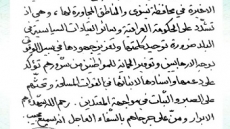 الأخيرة في محافظة نينوى والمناطق المجاورة لها، وهي إذ
تشدد على الحكومة العراقية وسائر القيادات السياسية في
البلد ضرورة توحيد كلمتها وتعزيز جهودها في سبيل الوقوف
بوجه الإرهابيين وتوفير الحماية للمواطنين من شرورهم تؤكد
على دعمها وإسنادها لأبنائها في القوات المسلحة وتحثهم
على الصبر والثبات في مواجهة المعتدين. رحم الله شهداءهم
الأبرار ومنّ على جرحاهم بالشفاء العاجل إنه سميع مجيب